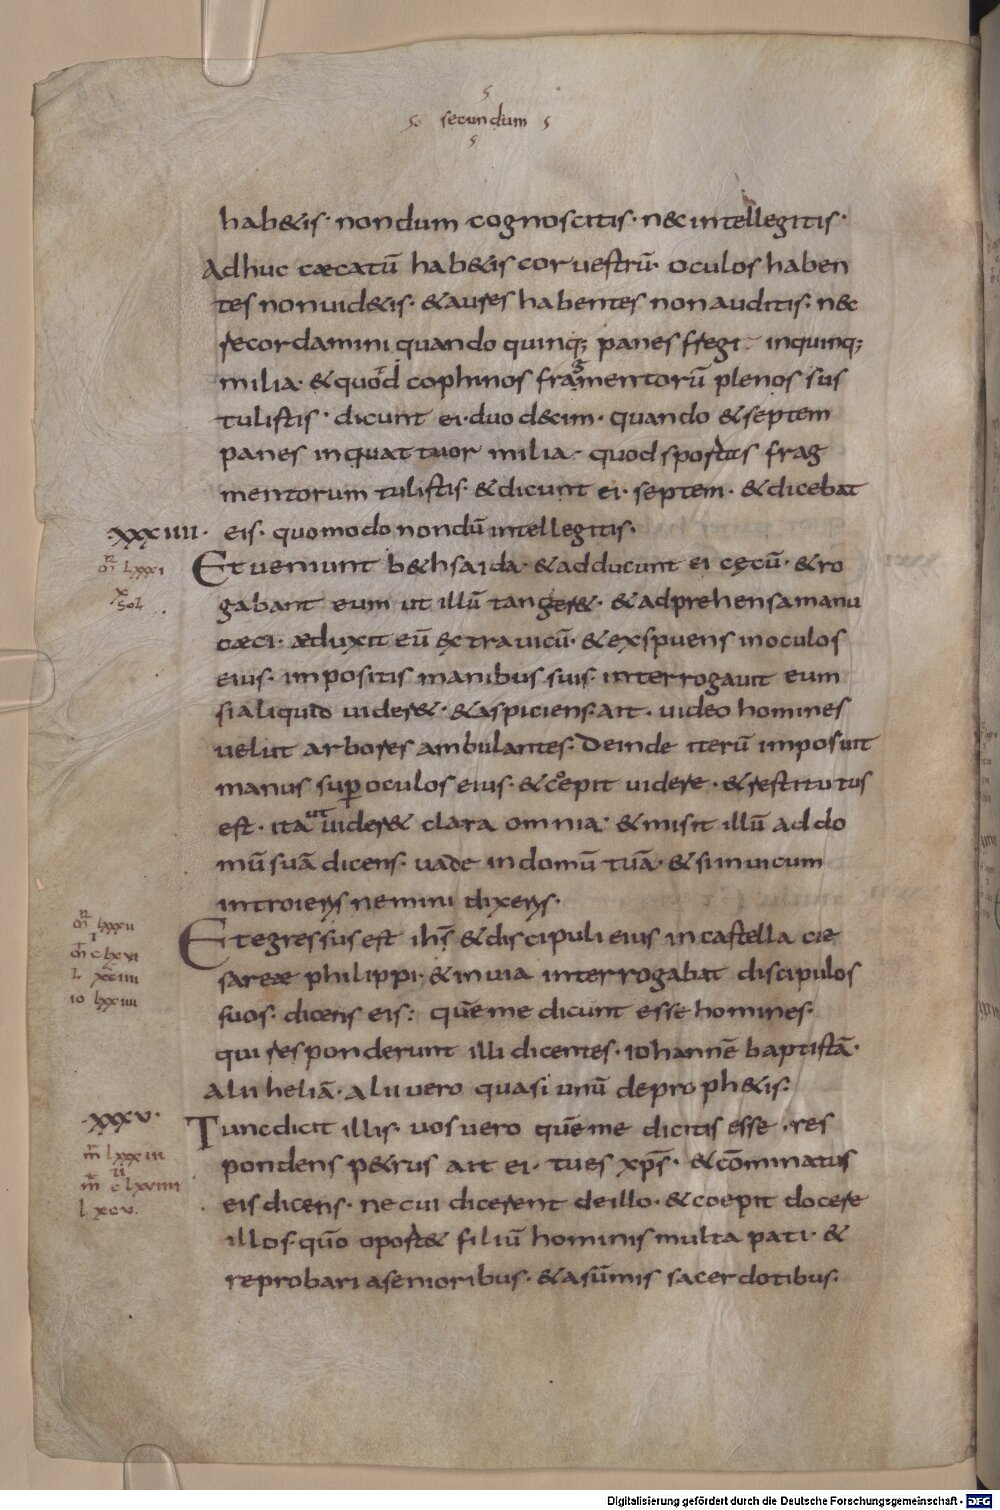 secundum
hab&is· nondum cognoscitis· nec intellegitis·
Adhuc cæcatū hab&is cor uestrū· oculos haben
tes non uid&is· & aures habentes non auditis· nec
recordamini quando quinq; panes fregi in quinq;
milia· & quod cophinos fragmentorū plenos sus
tulistis· dicunt ei· duodecim· quando & septem
panes in quattuor milia· quod sportas frag
mentorum tulistis· & dicunt ei· septem· & dicebat
·xxxiiii· eis· quomodo nondū intellegitis·
Et ueniunt b&hsaida· & adducunt ei cęcū· & ro
gabant eum ut illū tanger&· & adprehensa manu
cæci· æduxit eū extra uicū· & exspuens in oculos
eius· impositis manibus suis· interrogauit eum
si aliquid uider&· & aspiciens· ait· uideo homines
uelut arbores ambulantes· Deinde iterū imposuit
manus sup oculos eius· & cepit uidere· & restitutus
est· ita ut uider& clara omnia· & misit illū ad do
mū suā dicens· uade in domū tuā· & si in uicum
introierys nemini dixerys·
Et egressus est ihs & discipuli eius in castella cæ
sareæ philippi· & in uia interrogabat discipulos
suos· dicens eis· quē me dicunt esse homines·
qui responderunt illi dicentes· iohannē baptistā·
alii heliā· alii uero quasi unū de proph&is·
·xxxv· Tunc dicit illis· uos uero quē me dicitis esse· res
pondens p&rus ait ei· tu es xps· & cōminatus
eis dicens· ne cui dicerent de illo· & coepit docere
illos quō oport& filiū hominis multa pati· &
reprobari a senioribus· & a sūmis sacerdotibus·
Digitalisierung gefördert durch die Deutsche Forschungsgemeinschaft - DFG